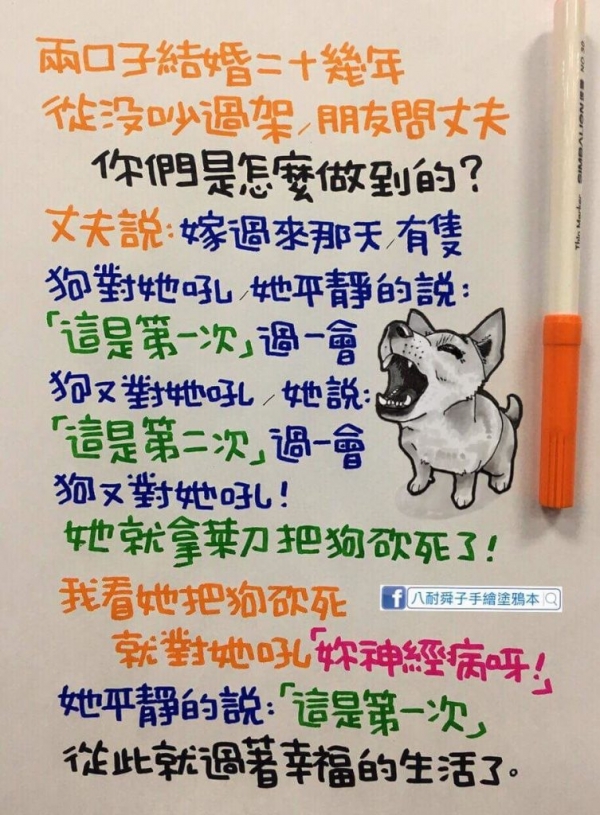 兩口子結婚二十幾年
從沒吵過架/朋友問丈夫
你們是怎麼做到的？
丈夫說：嫁過來那天/有隻
狗對她吼/她平靜的說：
「這是第一次」過一會
狗又對她吼/她說：
「這是第二次」過一會
狗又對她吼！
她就拿菜刀把狗砍死了！
我看她把狗砍死
f 八耐舜子手繪塗鴉本
就對她吼「妳神經病呀！」
她平靜的說：「這是第一次」
從此就過著幸福的生活了。
SIMBALION